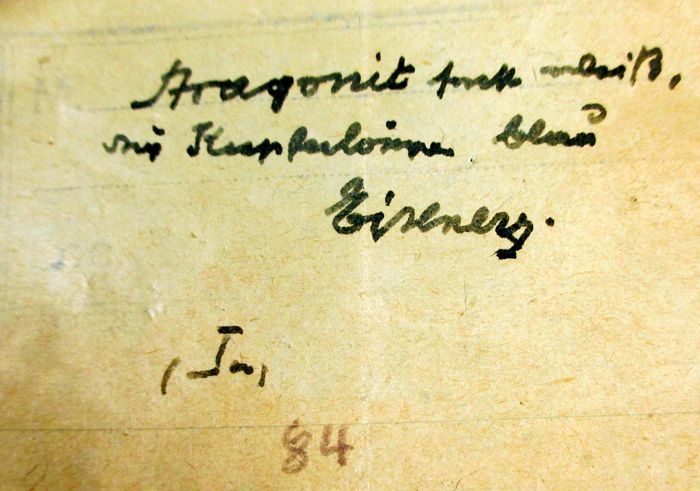 Aragonit fast weiß,
mit Kupferlösung blau
Eisenerz.
84